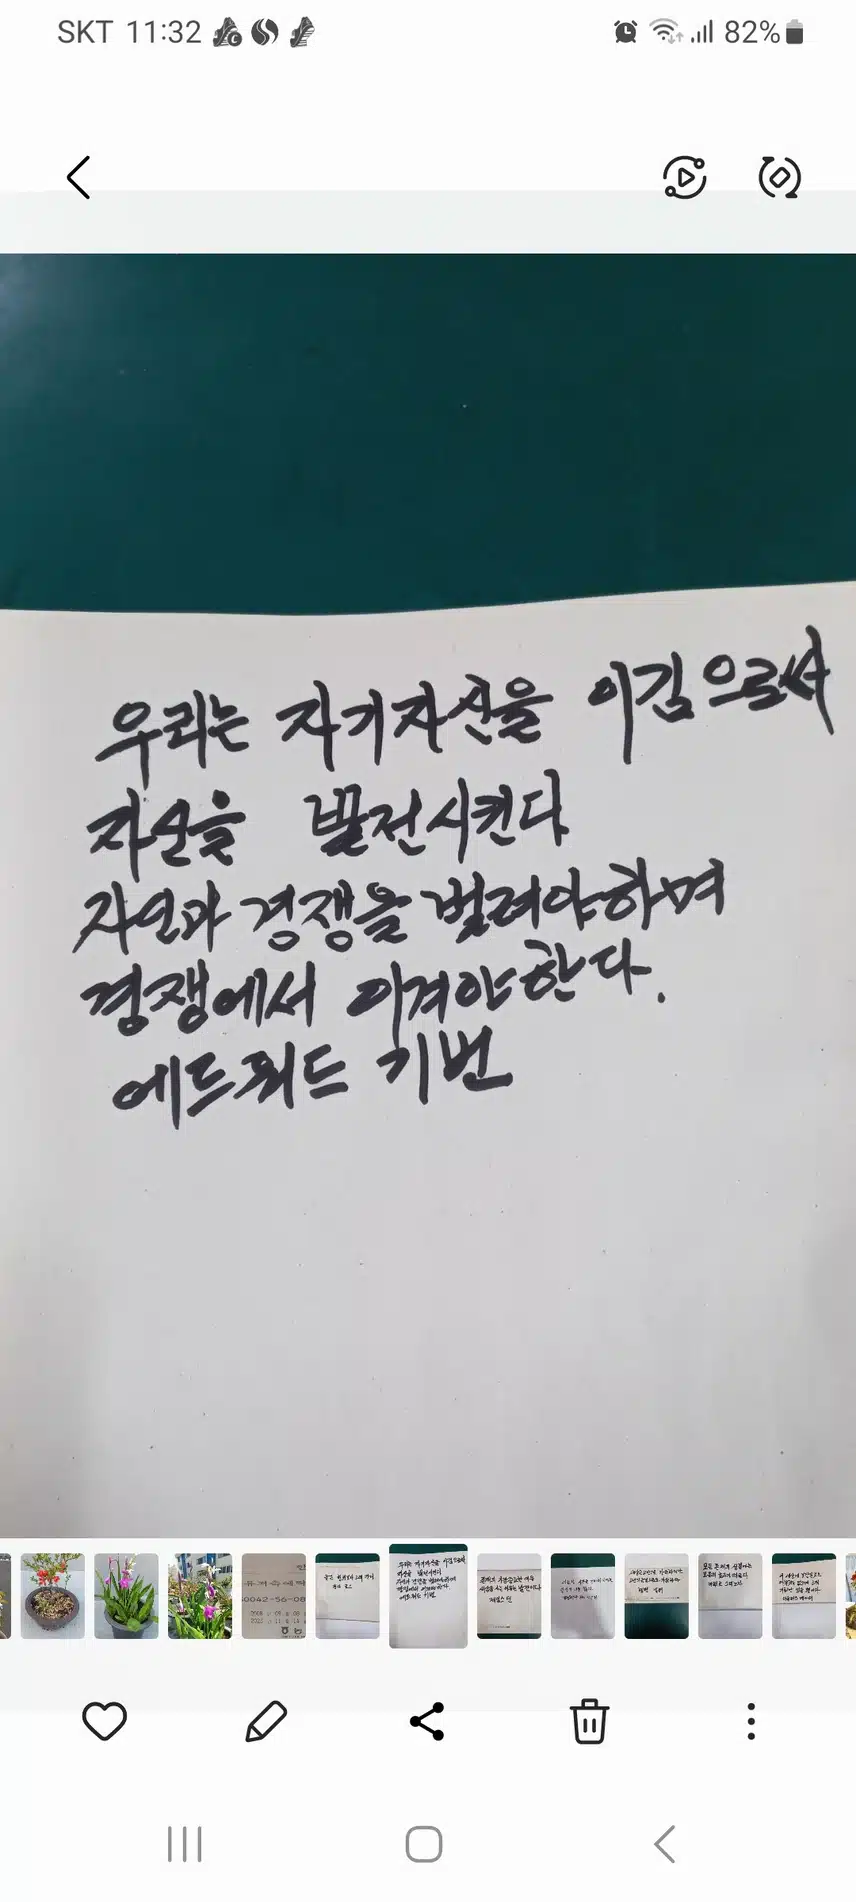 SKT 11:32 82%
우리는 자기자신을 이김으로써
자신을 발전시킨다
자신과 경쟁을 벌려야하며
경쟁에서 이겨야한다.
에드워드 기번